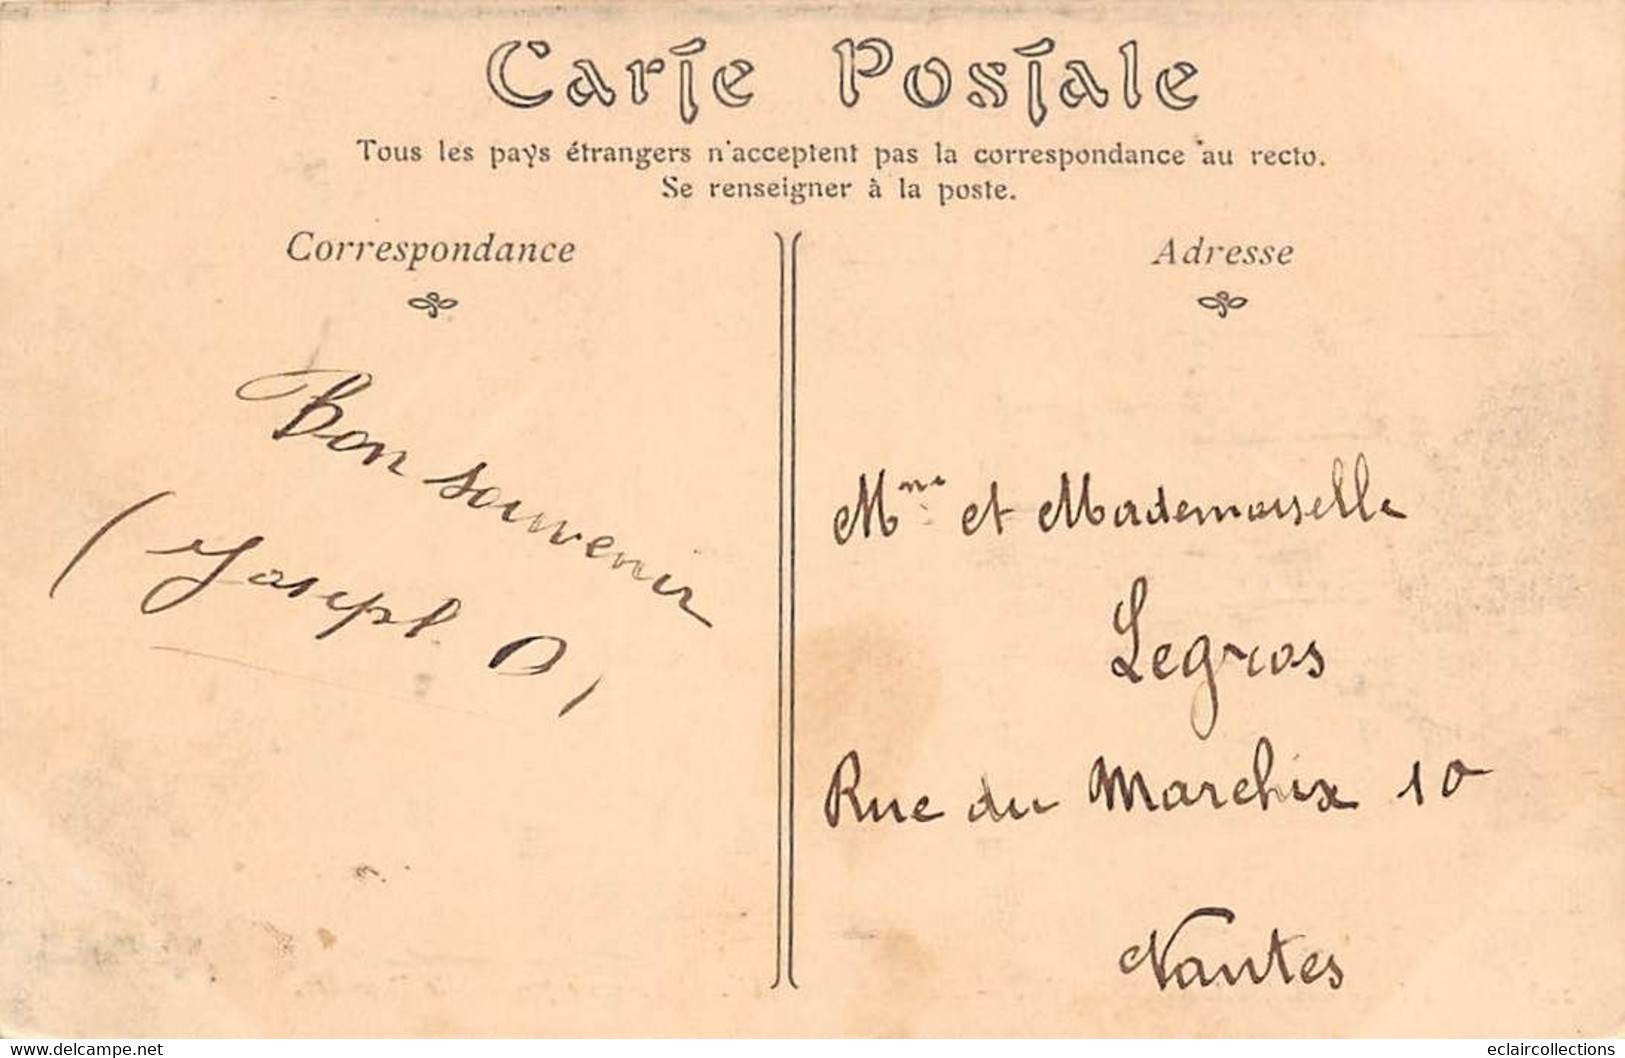 Carte Postale
Tous les pays étrangers n'acceptent pas la correspondance au recto.
Se renseigner à la poste.
Correspondance
Bon souvenir
(Joseph O)
Adresse
Mme et Mademoiselle
Legros
Rue du Marchix 10
Nantes
www.delcampe.net
eclaircollections